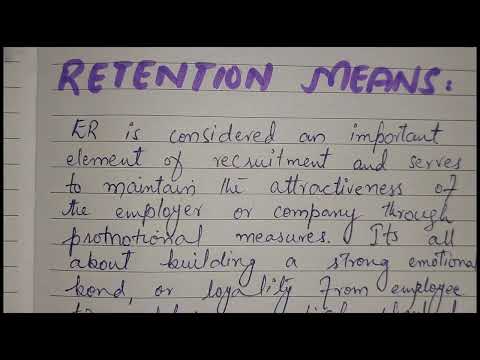 RETENTION MEANS:
ER is considered an important
element of recruitment and serves
to maintain the attractiveness of
the employer or company through
promotional measures. Its all
about building a strong emotional
bond, or loyality from employee